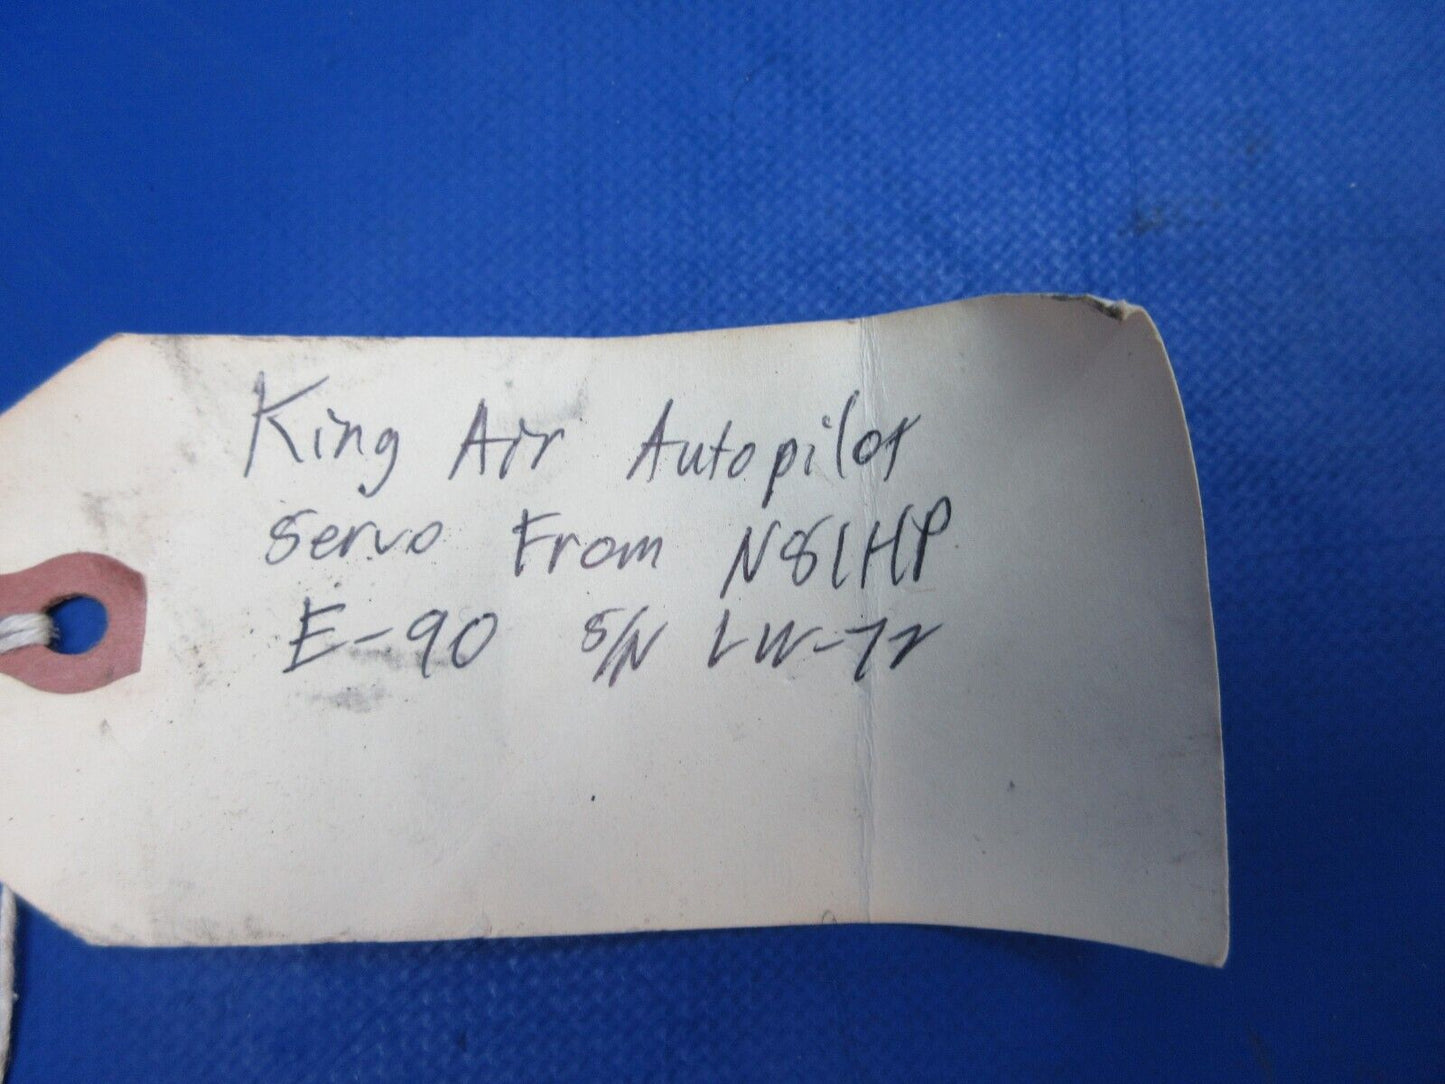 King Air Autopilot
Servo From N81HP
E-90 S/N LW-72